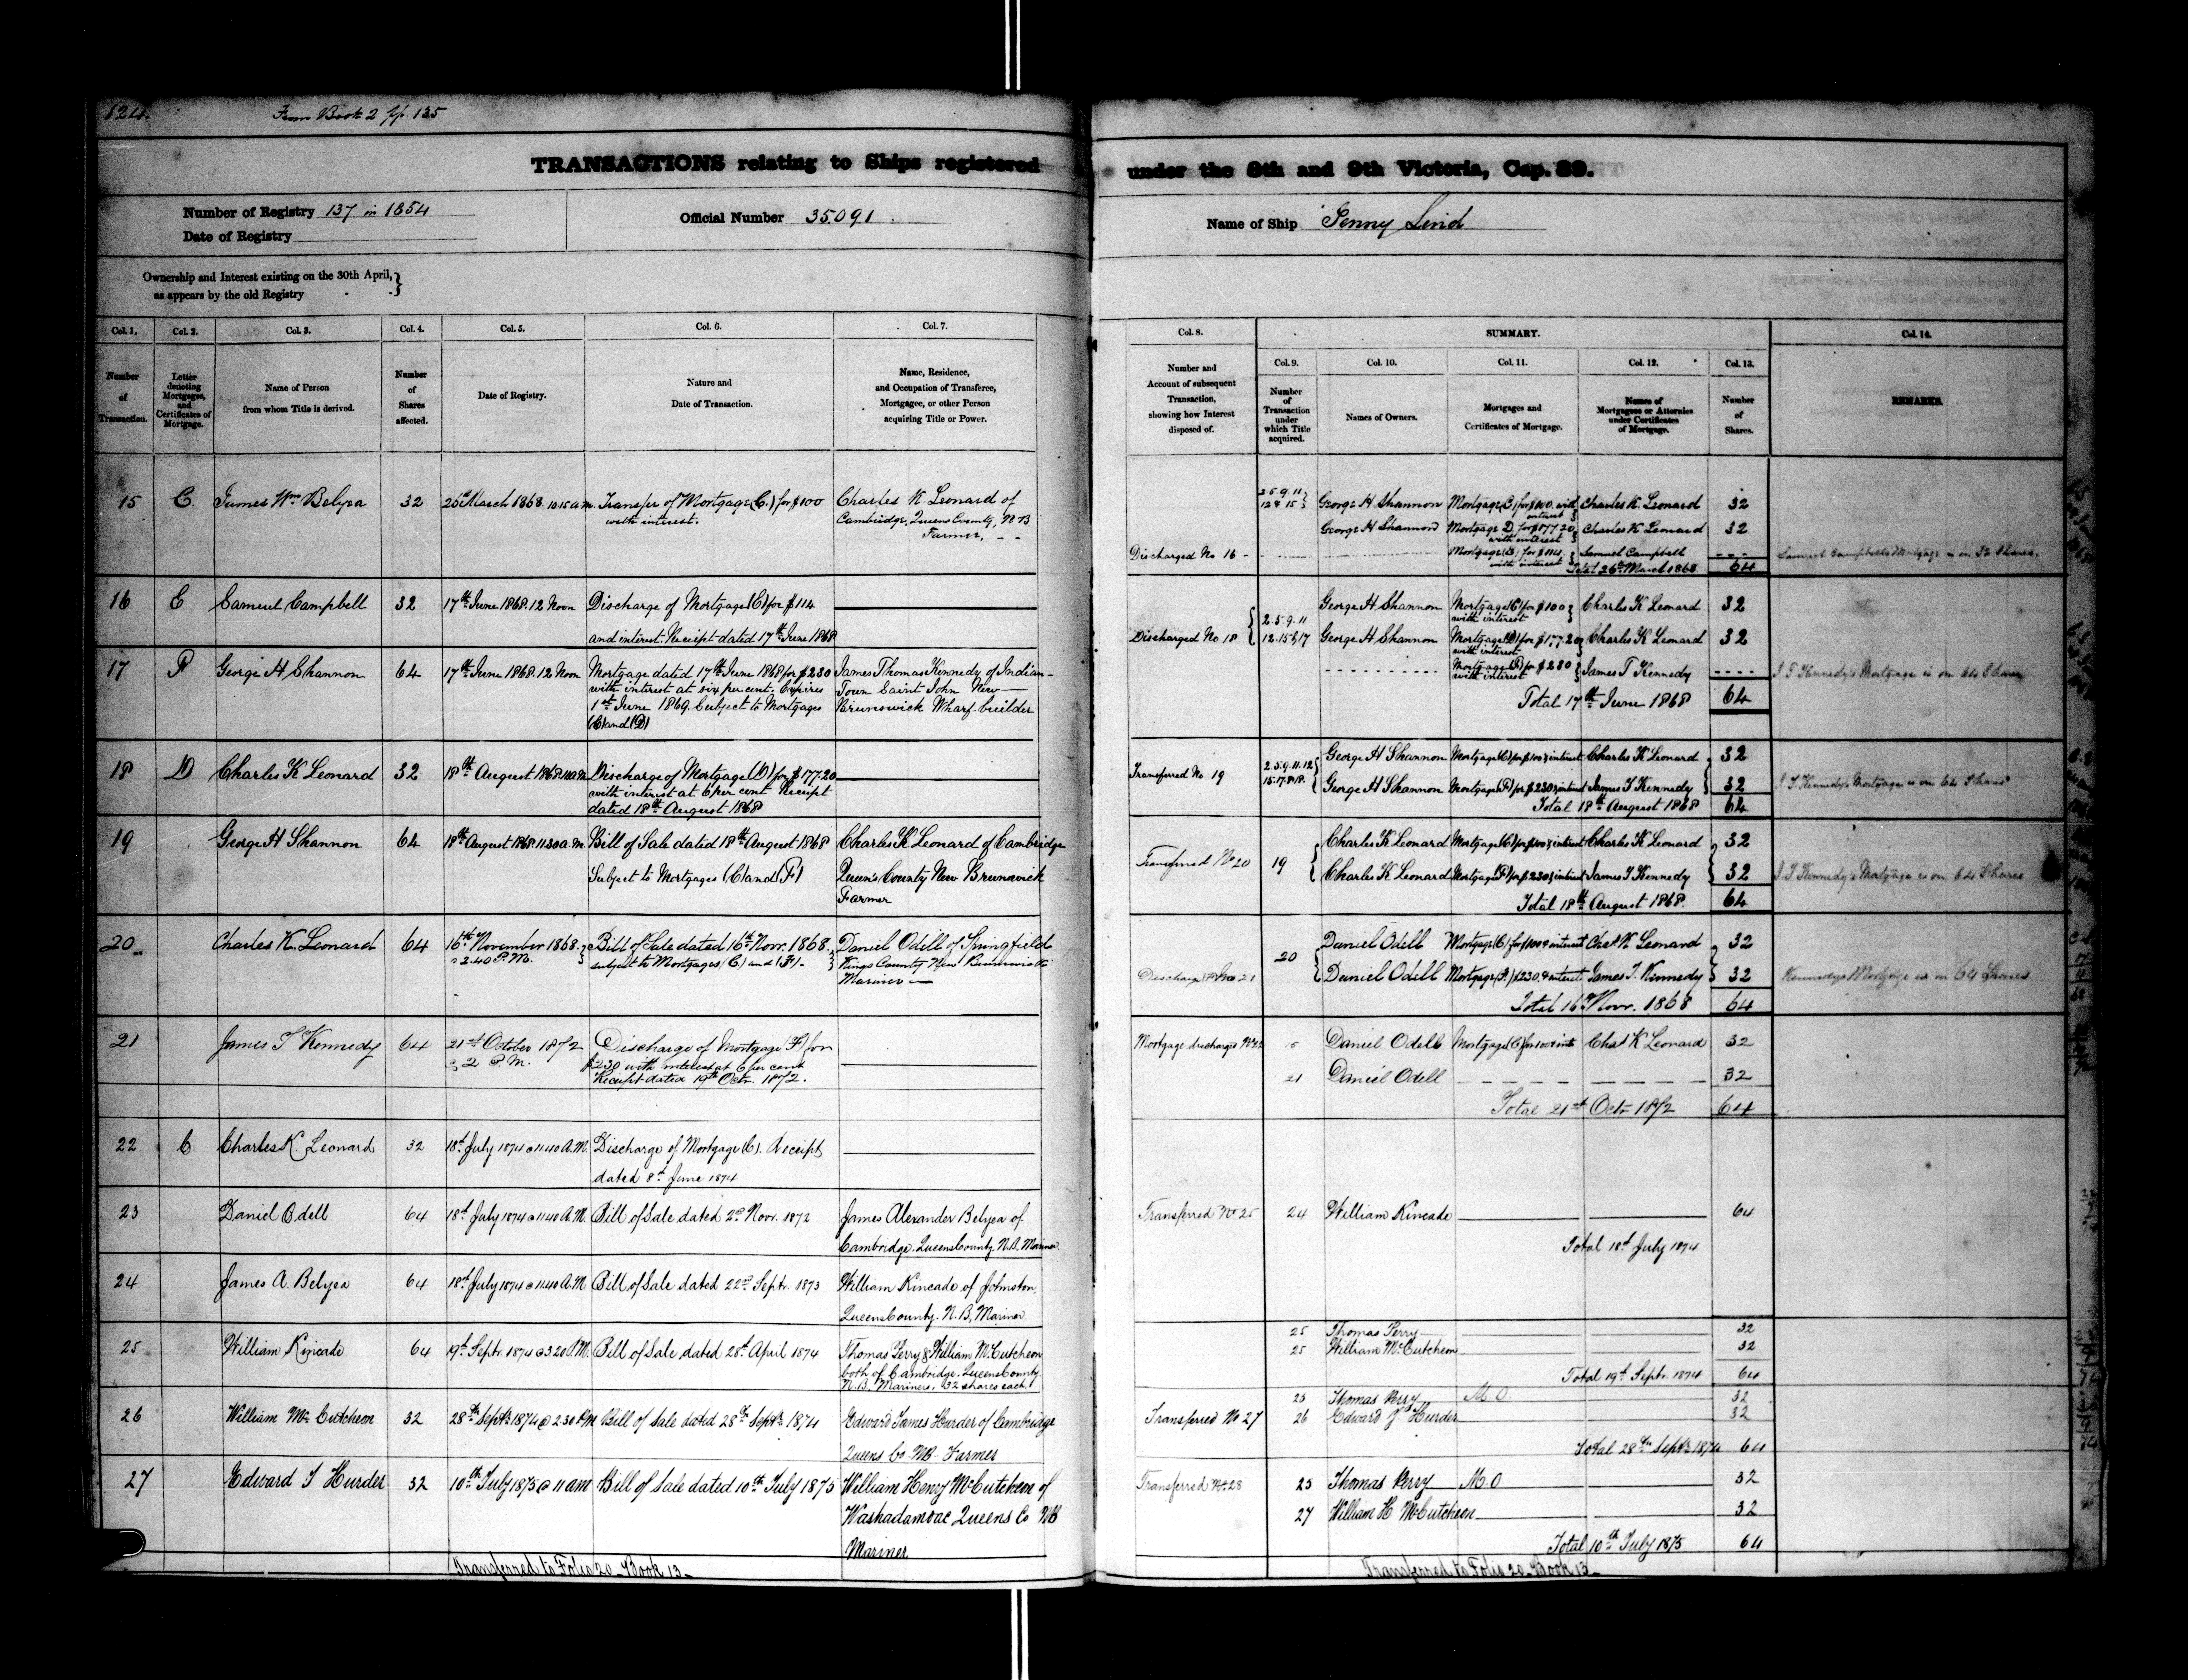 124.
From Book 2 pp. 135
TRANSACTIONS relating to Ships registered
under the 8th and 9th Victoria, Cap. 89.
Number of Registry 137 in 1854
Date of Registry
Official Number 35.091.
Name of Ship Jenny Lind
Ownership and Interest existing on the 30th April,
as appears by the old Registry
Col. 1.
Number
of
Transaction.
Col. 2.
Letter
denoting
Mortgages,
and
Certificates of
Mortgage.
Col. 3.
Name of Person
from whom Title is derived.
Col. 4.
Number
of
Shares
affected.
Col. 5.
Date of Registry.
Col. 6.
Nature and
Date of Transaction.
Col. 7.
Name, Residence,
and Occupation of Transferee,
Mortgagee, or other Person
acquiring Title or Power.
Col. 8.
Number and
Account of subsequent
Transaction,
showing how Interest
disposed of.
SUMMARY.
Col. 9.
Number
of
Transaction
under
which Title
acquired.
Col. 10.
Names of Owners.
Col. 11.
Mortgages and
Certificates of Mortgage.
Col. 12.
Names of
Mortgagees or Attornies
under Certificates
of Mortgage.
Col. 13.
Number
of
Shares.
Col. 14.
REMARKS.
15 C. James Wm Belyea 32 26th March 1868. 10.15 a.m. Transfer of Mortgage (C.) for $100
with interest.
Charles K Leonard of
Cambridge, Queens County, N.B.
Farmer. - -
2.5.9.11
12 & 15 George H Shannon Mortgage (C) for $100. with
interest Charles K Leonard 32
George H Shannon Mortgage D. for $177.20
with interest Charles K Leonard 32
Discharged No 16 Mortgage (E) for $114
with interest Samuel Campbell
Total 26th March 1868 64
Samuel Campbells Mortgage is on 32 Shares.
16 E Samuel Campbell 32 17th June 1868. 12 Noon Discharge of Mortgage (E) for $114
and interest. Receipt dated 17th June 1868
17 F George H Shannon 64 17th June 1868. 12 Noon Mortgage dated 17th June 1868 for $230
with interest at six per cent. Expires
1st June 1869. Subject to Mortgages
(C) and (D)
James Thomas Kennedy of Indian-
Town Saint John New
Brunswick Wharf builder
Discharged No 18 2.5.9.11
12.15 & 17
George H Shannon Mortgage (C) for $100
with interest Charles K Leonard 32
George H Shannon Mortgage (D) for $177.20
with interest Charles K Leonard 32
Mortgage (F) for $230
with interest James T Kennedy
Total 17th June 1868 64
J T Kennedy's Mortgage is on 64 Shares
18 D Charles K Leonard 32 18th August 1868 Discharge of Mortgage (D) for $177.20
with interest at 6 per cent Receipt
dated 18th August 1868
Transferred No 19 2.5.9.11.12
15.17.&18.
George H Shannon Mortgage (C) for $100 & interest Charles K Leonard 32
George H Shannon Mortgage (F) for $230 & interest James T Kennedy 32
Total 18th August 1868 64
J T Kennedy's Mortgage is on 64 Shares
19 George H Shannon 64 18th August 1868. 11.30 a.m. Bill of Sale dated 18th August 1868
Subject to Mortgages (C) and (F)
Charles K Leonard of Cambridge
Queen's County New Brunswick
Farmer
Transferred No 20 19
Charles K Leonard Mortgage (C) for $100 & interest Charles K Leonard 32
Charles K Leonard Mortgage (F) for $230 & interest James T Kennedy 32
Total 18th August 1868. 64
J T Kennedy's Mortgage is on 64 Shares
20 Charles K. Leonard 64 16th November 1868.
@ 2.40 P.M.
Bill of Sale dated 16th Novr. 1868.
subject to Mortgages (C.) and (F.) -
Daniel Odell of Springfield
Kings County New Brunswick
Mariner
Discharge No 21 20
Daniel Odell Mortgage (C) for $100 & interest Chas K Leonard 32
Daniel Odell Mortgage (F.) $230. & interest James T. Kennedy 32
Total 16th Novr. 1868 64
Kennedys Mortgage is on 64 Shares
21 James T Kennedy 64 21st October 1872
@ 2 P.M.
Discharge of Mortgage (F) for
$230 with interest at 6 per cent
Receipt dated 19th Octr. 1872.
Mortgage discharged No 22
Daniel Odell Mortgage (C) for 100 & int Chas K Leonard 32
21 Daniel Odell 32
Total 21st Octr 1872 64
22 C. Charles K. Leonard 32 18th July 1874 @ 11.40 A.M. Discharge of Mortgage (C). Receipt
dated 8th June 1874
23 Daniel Odell 64 18th July 1874 @ 11.40 A.M. Bill of Sale dated 2nd Novr. 1872
James Alexander Belyea of
Cambridge. Queens County. N.B. Mariner
Transferred No 25 24 William Kincade 64
Total 18th July 1874
24 James A. Belyea 64 18th July 1874 @ 11.40 A.M. Bill of Sale dated 22nd Septr. 1873
William Kincade of Johnston,
Queens County. N.B. Mariner
25 William Kincade 64 19th Septr. 1874 @ 3.20 P.M. Bill of Sale dated 28th April 1874
Thomas Perry & William McCutcheon
both of Cambridge. Queens County
N.B. Mariners. 32 shares each
25 Thomas Perry 32
25 William McCutcheon 32
Total 19th Septr. 1874 64
26 William McCutcheon 32 28th Septr 1874 @ 2.30 P.M Bill of Sale dated 28th Septr 1874
Edward James Hurder of Cambridge
Queens Co NB. Farmer
25 Thomas Perry M.O. 32
Transferred No 27 26 Edward J Hurder 32
Total 28th Septr 1874 64
27 Edward J Hurder 32 10th July 1875 @ 11 am Bill of Sale dated 10th July 1875
William Henry McCutcheon of
Washadamoac Queens Co NB
Mariner
Transferred No 28 25 Thomas Perry M.O 32
27 William H McCutcheon 32
Total 10th July 1875 64
Transferred to Folio 20 Book 13
Transferred to Folio 20 Book 13